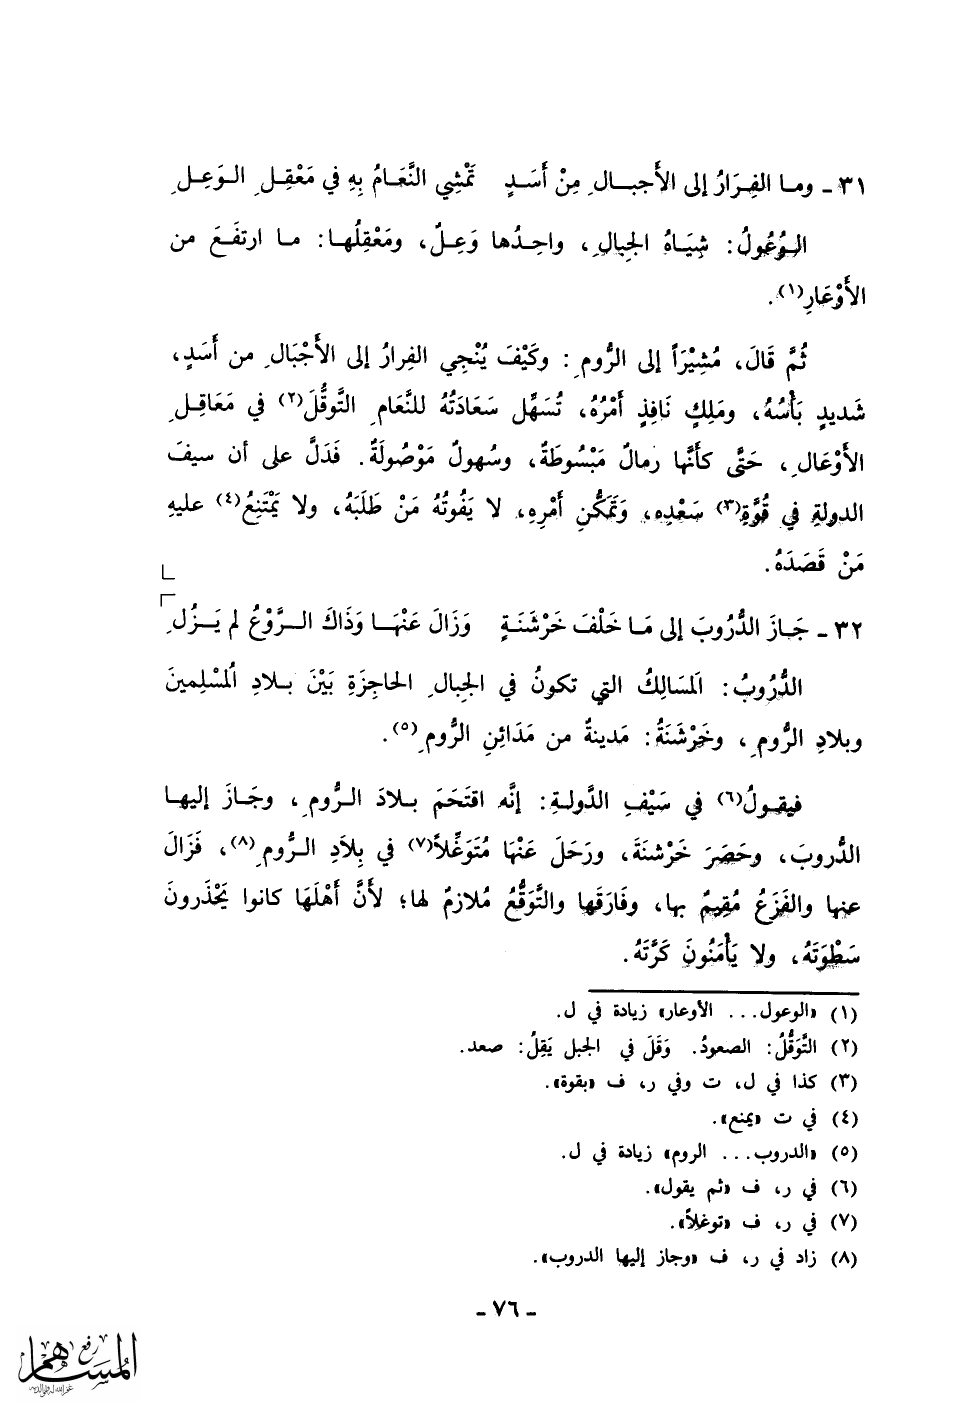 ٣١ - وما الفِرَارُ إلى الأَجبالِ مِنْ أَسَدٍ    تَمْشِي النَّعَامُ بِهِ في مَعْقِلِ الوَعِلِ
الوُعُولُ: شِيَاهُ الجِبالِ، واحِدُها وَعِلٌ، ومَعْقِلُها: ما ارتفَعَ من
الأَوْعَارِ(١).
ثُمَّ قَالَ، مُشِيْرَاً إلى الرُّومِ: وكَيْفَ يُنْجِي الفِرارُ إلى الأَجْبَالِ من أَسَدٍ،
شَديدٍ بَأْسُهُ، ومَلِكٍ نَافِذٍ أَمْرُهُ، تُسَهِّل سَعَادَتُهُ للنَّعَامِ التَّوقُّلَ(٢) في مَعَاقِلِ
الأَوْعَالِ، حَتَّى كأَنَّها رمالٌ مَبْسُوطَةٌ، وسُهولٌ مَوْصُولَةٌ. فَدَلَّ على أن سيفَ
الدولةِ في قُوَّةِ(٣) سَعْدِه، وَتَمَكُّنِ أَمْرِهِ، لا يَفُوتُهُ مَنْ طَلَبَهُ، ولا يَمْتَنِعُ(٤) عليهِ
مَنْ قَصَدَهُ.
٣٢ - جَازَ الدُّرُوبَ إلى مَا خَلْفَ خَرْشَنَةٍ    وَزَالَ عَنْهَا وَذَاكَ الرَّوْعُ لم يَزُلِ
الدُّرُوبُ: المَسَالِكُ التي تكونُ في الجِبالِ الحاجِزَةِ بَيْنَ بلادِ المُسْلِمينَ
وبلادِ الرُّومِ، وخَرْشَنَةُ: مَدينةٌ من مَدَائنِ الرُّومِ(٥).
فيقولُ(٦) في سَيْفِ الدَّولةِ: إنَّه اقتَحَمَ بلادَ الرُّومِ، وجَازَ إليها
الدُّروبَ، وحَصَرَ خَرْشنَةَ، ورَحَلَ عَنْهَا مُتَوَغِّلاً(٧) في بِلاَدِ الرُّومِ(٨)، فَزَالَ
عنها والفَزَعُ مُقِيمٌ بها، وفَارَقَها والتَّوَقُّعُ مُلازمٌ لها؛ لأَنَّ أَهْلَهَا كانوا يَحْذَرونَ
سَطْوَتَهُ، ولا يَأْمَنُونَ كَرَّتَهُ.
(١) «الوعول... الأوعار» زيادة في ل.
(٢) التَّوَقُّلُ: الصعودُ. وَقَلَ في الجبل يَقِلُ: صعد.
(٣) كذا في ل، ت وفي ر، ف «بقوة».
(٤) في ت «يمنع».
(٥) «الدروب... الروم» زيادة في ل.
(٦) في ر، ف «ثم يقول».
(٧) في ر، ف «توغلاً».
(٨) زاد في ر، ف «وجاز إليها الدروب».
- ٧٦ -
رفع
المساهم